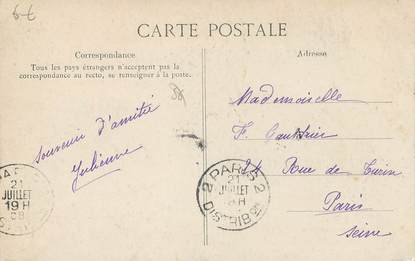 CARTE POSTALE
Correspondance
Tous les pays étrangers n'acceptent pas la
correspondance au recto, se renseigner à la poste.
Adresse
souvenir d'amitié
Julienne
Mademoiselle
F.
24 Rue de Turin
Paris
Seine
PAR
21
JUILLET
19 H
08
PARIS 2
21
JUILLET
H
DISTRIB